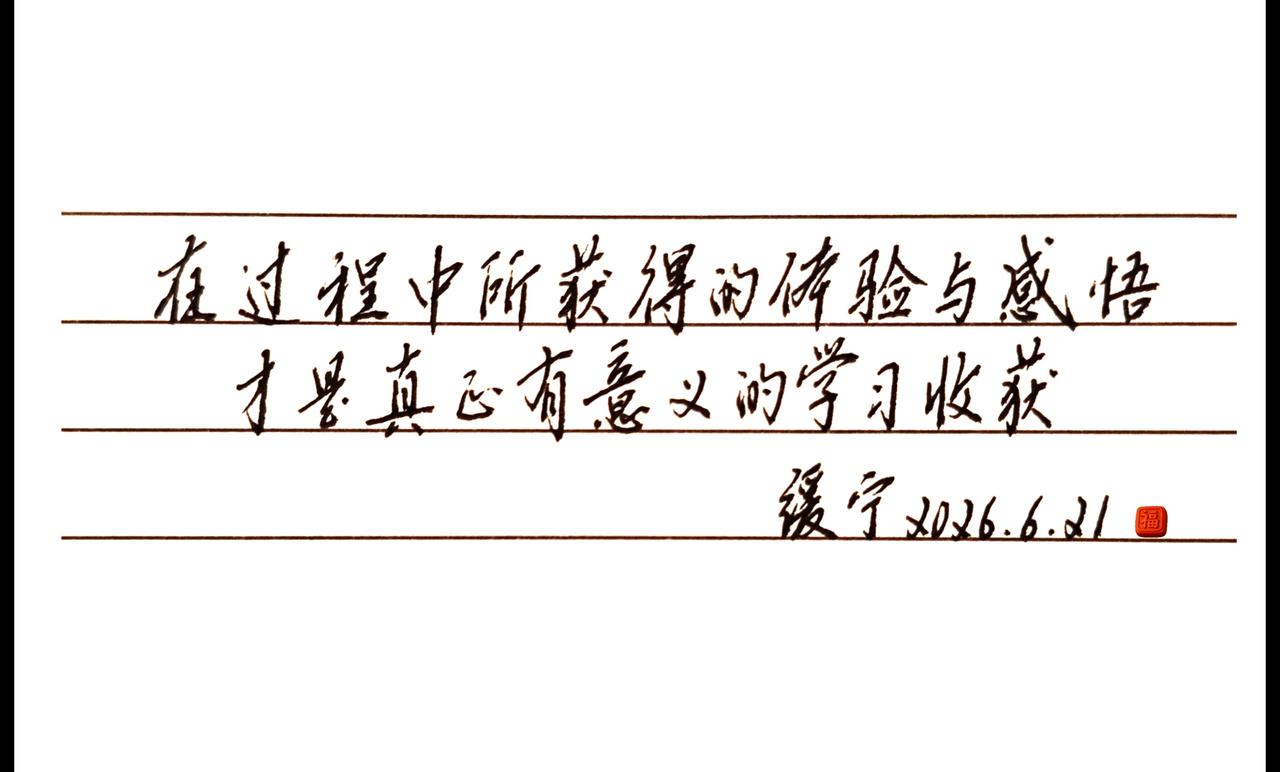 在过程中所获得的体验与感悟
才是真正有意义的学习收获
缓宁2026.6.21 福